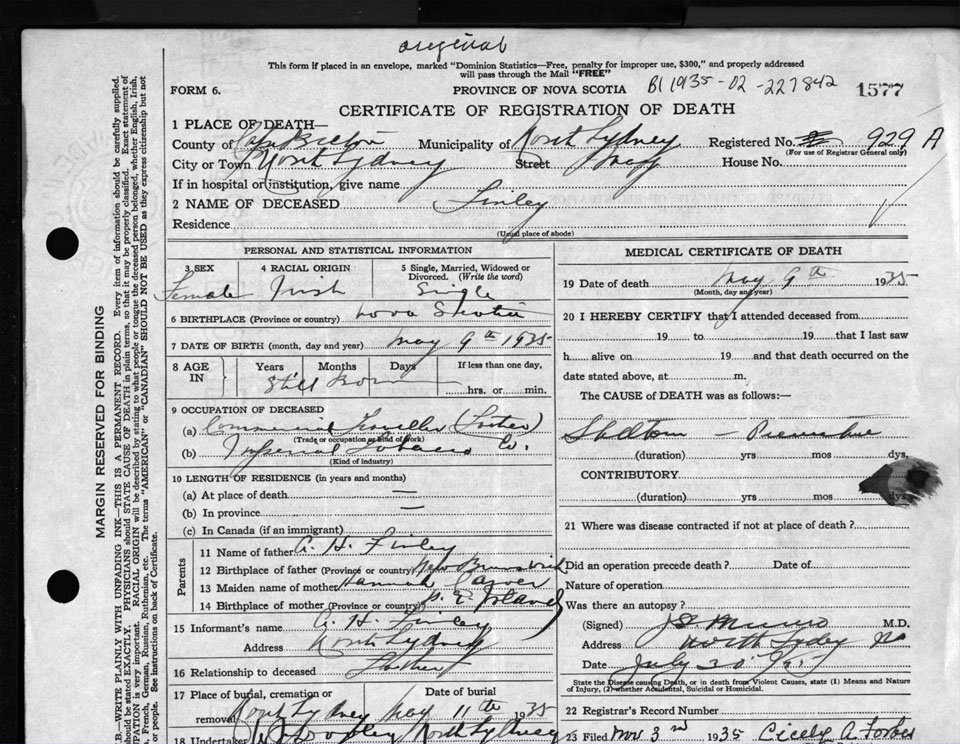 original
This form if placed in an envelope, marked "Dominion Statistics—Free, penalty for improper use, $300," and properly addressed
will pass through the Mail "FREE"
FORM 6.
PROVINCE OF NOVA SCOTIA
B1 1935-02-227842
1577
CERTIFICATE OF REGISTRATION OF DEATH
1 PLACE OF DEATH—
County of Cape Breton Municipality of North Sydney Registered No. 929 A
(For use of Registrar General only)
City or Town North Sydney Street House No.
If in hospital or institution, give name
2 NAME OF DECEASED Finley
Residence
(Usual place of abode)
PERSONAL AND STATISTICAL INFORMATION
3 SEX 4 RACIAL ORIGIN 5 Single, Married, Widowed or
Divorced. (Write the word)
Female Irish Single
6 BIRTHPLACE (Province or country) Nova Scotia
7 DATE OF BIRTH (month, day and year) May 9th 1935
8 AGE IN Years Months Days If less than one day,
Still Born hrs. or min.
9 OCCUPATION OF DECEASED
(a) Commercial Traveller (Father)
(Trade or occupation or kind of work)
(b) Imperial Tobacco Co.
(Kind of industry)
10 LENGTH OF RESIDENCE (in years and months)
(a) At place of death —
(b) In province —
(c) In Canada (if an immigrant)
Parents
11 Name of father A. H. Finley
12 Birthplace of father (Province or country) New Brunswick
13 Maiden name of mother Hannah Carver
14 Birthplace of mother (Province or country) P. E. Island
15 Informant's name A. H. Finley
Address North Sydney
16 Relationship to deceased Father
17 Place of burial, cremation or Date of burial
removal North Sydney May 11th 1935
18 Undertaker North Sydney
MEDICAL CERTIFICATE OF DEATH
19 Date of death May 9th 1935
(Month, day and year)
20 I HEREBY CERTIFY that I attended deceased from
19 to 19 that I last saw
h alive on 19 and that death occurred on the
date stated above, at m.
The CAUSE of DEATH was as follows:—
Stillborn — Premature
(duration) yrs mos dys.
CONTRIBUTORY
(duration) yrs mos dys.
21 Where was disease contracted if not at place of death?
Did an operation precede death? Date of
Nature of operation
Was there an autopsy?
(Signed) Munro M.D.
Address North Sydney NS
Date July 30
State the Disease causing Death, or in death from Violent Causes, state (1) Means and Nature
of Injury, (2) whether Accidental, Suicidal or Homicidal.
22 Registrar's Record Number
23 Filed Nov 3rd 1935 Cicely A. Forbes
MARGIN RESERVED FOR BINDING
B.—WRITE PLAINLY WITH UNFADING INK—THIS IS A PERMANENT RECORD. Every item of information should be carefully supplied.
should be stated EXACTLY. PHYSICIANS should STATE CAUSE OF DEATH in plain terms, so that it may be properly classified. Exact statement of
PATION is very important. RACIAL ORIGIN will be described by stating to what people or tongue the deceased person belonged, whether English, Irish,
French, German, Russian, Ruthenian, etc. The terms "AMERICAN" or "CANADIAN" SHOULD NOT BE USED as they express citizenship but not
or people. See instructions on back of Certificate.